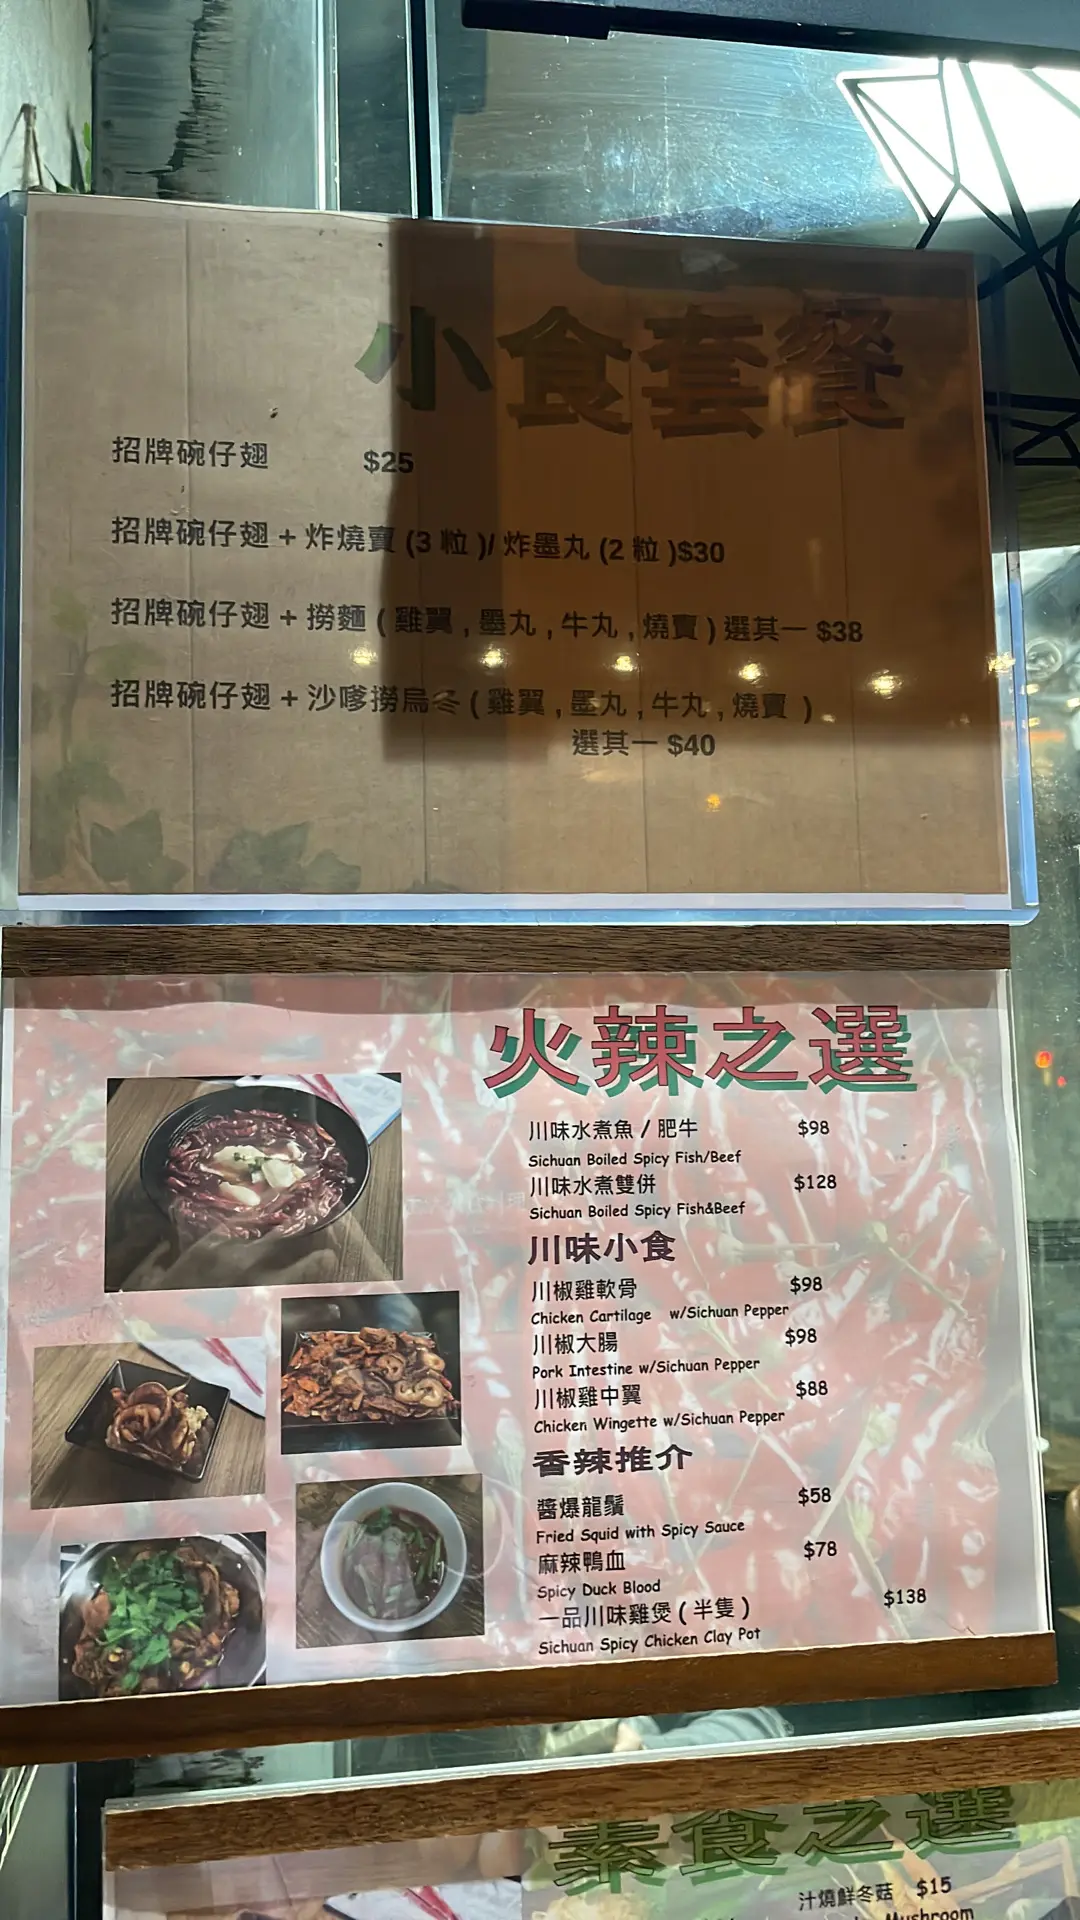 小食套餐
招牌碗仔翅 $25
招牌碗仔翅 + 炸燒賣 (3 粒 )/ 炸墨丸 (2 粒 )$30
招牌碗仔翅 + 撈麵 ( 雞翼 , 墨丸 , 牛丸 , 燒賣 ) 選其一 $38
招牌碗仔翅 + 沙嗲撈烏冬 ( 雞翼 , 墨丸 , 牛丸 , 燒賣 )
選其一 $40
火辣之選
川味水煮魚 / 肥牛 $98
Sichuan Boiled Spicy Fish/Beef
川味水煮雙併 $128
Sichuan Boiled Spicy Fish&Beef
川味小食
川椒雞軟骨 $98
Chicken Cartilage w/Sichuan Pepper
川椒大腸 $98
Pork Intestine w/Sichuan Pepper
川椒雞中翼 $88
Chicken Wingette w/Sichuan Pepper
香辣推介
醬爆龍鬚 $58
Fried Squid with Spicy Sauce
麻辣鴨血 $78
Spicy Duck Blood
一品川味雞煲 ( 半隻 ) $138
Sichuan Spicy Chicken Clay Pot
素食之選
汁燒鮮冬菇 $15
Mushroom